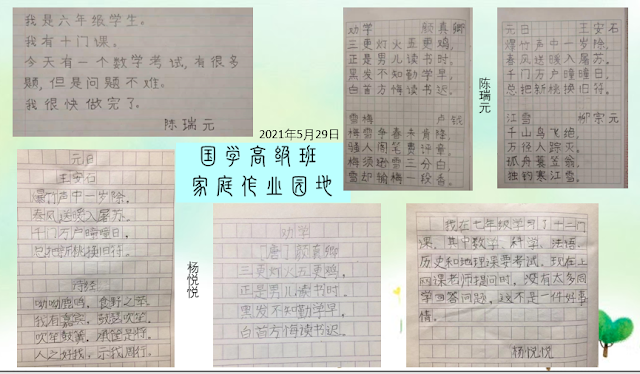 我是六年级学生。
我有十门课。
今天有一个数学考试,有很多
题,但是问题不难。
我很快做完了。
陈瑞元
劝学 颜真卿
三更灯火五更鸡,
正是男儿读书时,
黑发不知勤学早,
白首方悔读书迟。
雪梅 卢钺
梅雪争春未肯降,
骚人阁笔费评章。
梅须逊雪三分白,
雪却输梅一段香。
陈瑞元
元日 王安石
爆竹声中一岁除,
春风送暖入屠苏。
千门万户曈曈日,
总把新桃换旧符。
江雪 柳宗元
千山鸟飞绝,
万径人踪灭。
孤舟蓑笠翁,
独钓寒江雪。
2021年5月29日
国学高级班
家庭作业园地
元日
王安石
爆竹声中一岁除,
春风送暖入屠苏。
千门万户曈曈日,
总把新桃换旧符。
呦呦鹿鸣,食野之苹。
我有嘉宾,鼓瑟吹笙。
吹笙鼓簧,承筐是将。
人之好我,示我周行。
杨悦悦
劝学
[唐] 颜真卿
三更灯火五更鸡,
正是男儿读书时。
黑发不知勤学早,
白首方悔读书迟。
我在七年级,学习了十二门
课,其中数学,科学,法语,
历史和地理课要考试。现在上
网课老师提问时,没有太多同
学回答问题,这不是一件好事
情。
杨悦悦